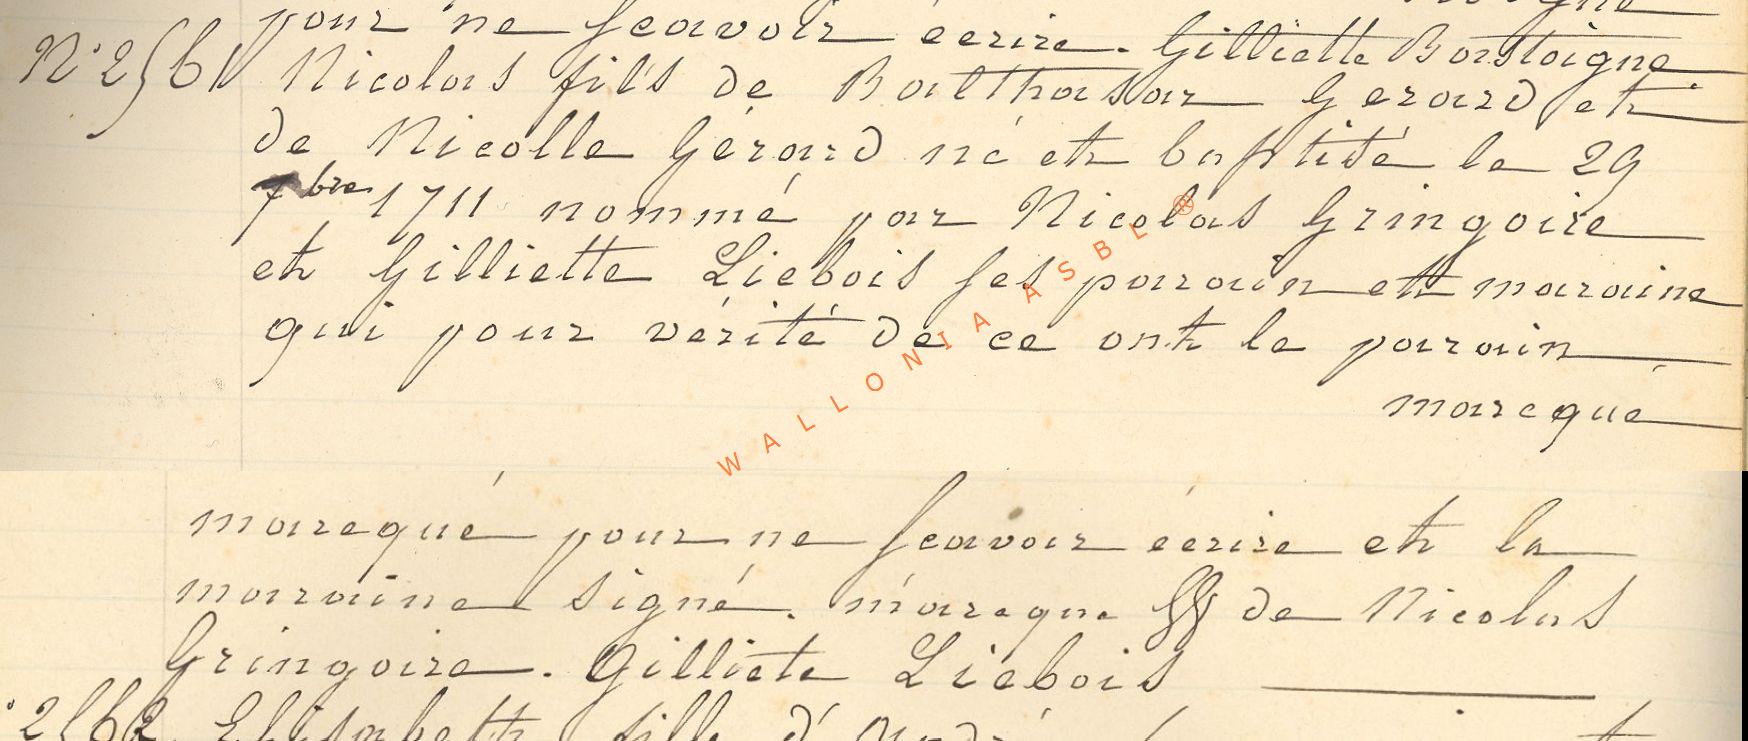 pour ne scavoir écrire. Gilliette Bastoigne
N° 2561 Nicolas fils de Balthasar Gerard et
de Nicolle Gérard né et baptisé le 29
7bre 1711 nommé par Nicolas Gringoire
et Gilliette Liebois ses parain et maraine
qui pour vérité de ce ont le parain
marcqué
WALLONIA ASBL ®
marcqué pour ne scavoir écrire et la
maraine signé. marcque de Nicolas
Gringoire. Gilliete Liebois
2562 Elisabeth fille d'André